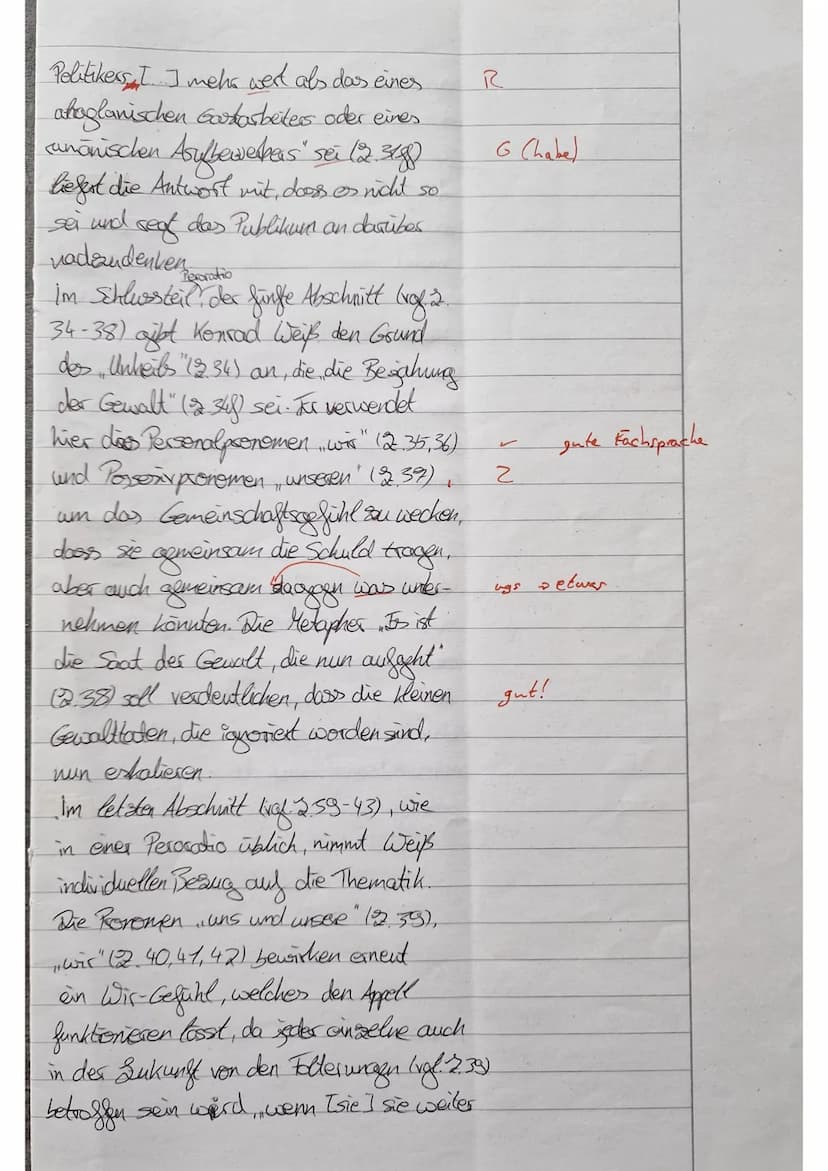 Politikers, [...] mehr wert als das eines R
afoglanischen Gastarbeiters oder eines
rumänischen Asylbewerbers" sei (Z. 31ff) G (habe)
liefert die Antwort mit, dass es nicht so
sei und regt das Publikum an darüber
nachzudenken
Peroratio
Im Schlussteil, der fünfte Abschnitt (vgl. Z.
34-38) gibt Konrad Weiß den Grund
des „Unheils" (Z. 34) an, die „die Bejahung
der Gewalt" (Z. 34f) sei. Er verwendet
hier das Personalpronomen „wir" (Z. 35, 36) ✓ gute Fachsprache
und Possesivpronomen „unseren" (Z. 37), Z
um das Gemeinschaftsgefühl zu wecken,
dass sie gemeinsam die Schuld tragen,
aber auch gemeinsam dagegen was unter- ugs → etwas
nehmen könnten. Die Metapher „Es ist
die Saat der Gewalt, die nun aufgeht"
(Z. 38) soll verdeutlichen, dass die kleinen gut!
Gewalttaten, die ignoriert worden sind,
nun eskalieren.
Im letzten Abschnitt (vgl. Z. 39-43), wie
in einer Peroratio üblich, nimmt Weiß
individuellen Bezug auf die Thematik.
Die Pronomen „uns und unsere" (Z. 39),
„wir" (Z. 40, 41, 42) bewirken erneut
ein Wir-Gefühl, welches den Appell
funktionieren lässt, da jeder einzelne auch
in der Zukunft von den Folterungen (vgl. Z. 39)
betroffen sein wird, „wenn [sie] sie weiter